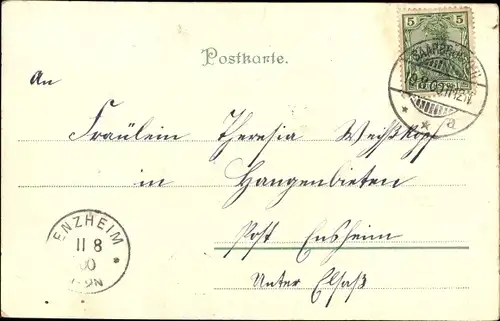 5
Postkarte.
An
Fräulein Theresia Weißkopf
in Hangenbieten
Post Ensheim
Unter Elsaß
ENZHEIM
11 8
00